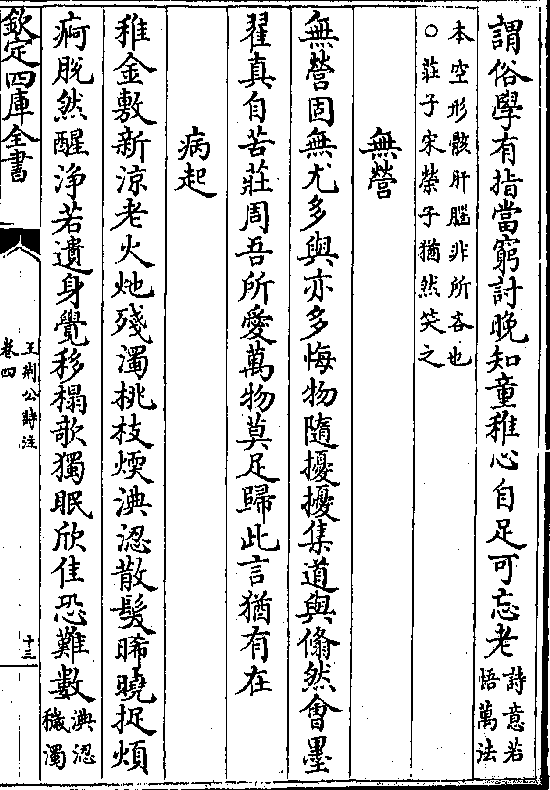 謂俗學有指當窮討晚知童稚心自足可忘老詩意若悟萬法
本空形骸肝腦非所吝也
○莊子宋榮子猶然笑之
無營
無營固無尤多與亦多悔物隨擾擾集道與翛然會墨
翟真自苦莊周吾所愛萬物莫足歸此言猶有在
病起
稚金敷新涼老火灺殘濁桃枝煗淟涊散髮晞曉捉煩
痾脫然醒淨若遺身覺移榻欹獨眠欣佳恐難數淟涊
穢濁
欽定四庫全書
王荊公詩注
卷四
十三